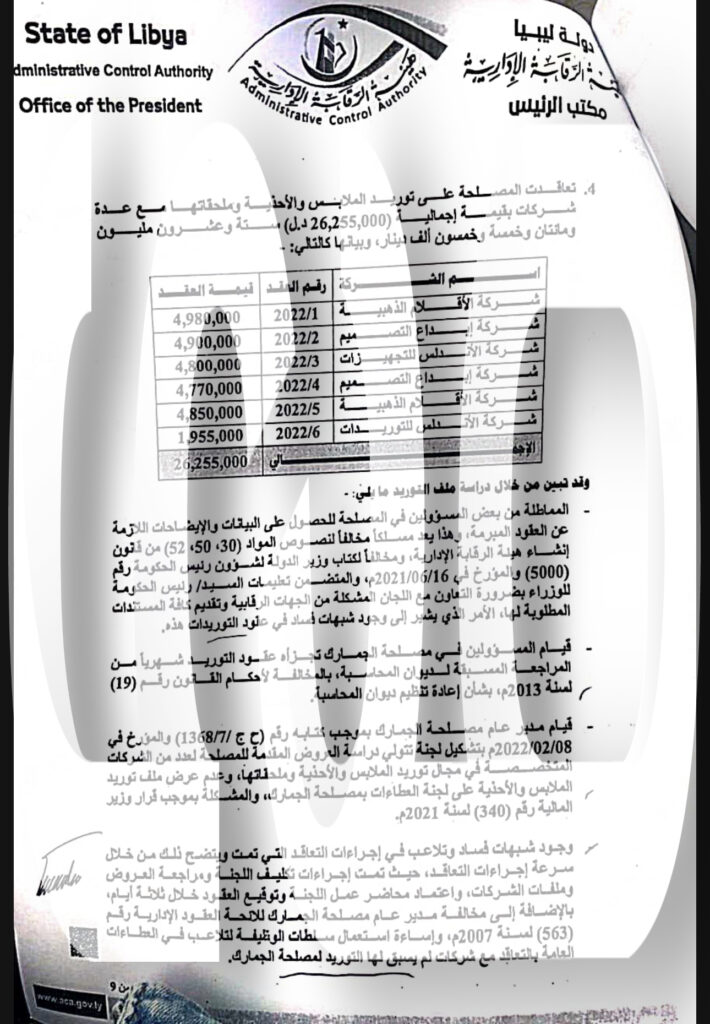 State of Libya
dministrative Control Authority
Office of the President
دولة ليبيا
هيئة الرقابة الإدارية
مكتب الرئيس
هيئة الرقابة الإدارية
Administrative Control Authority
4. تعاقدت المصلحة على توريد الملابس والأحذية وملحقاتها مع عدة
شركات بقيمة إجمالية (26,255,000 د.ل) ستة وعشرون مليون
ومائتان وخمسة وخمسون ألف دينار، وبيانها كالتالي:-
اسم الشركة رقم العقد قيمة العقد
شركة الأقلام الذهبية 2022/1 4,980,000
شركة إبداع التصميم 2022/2 4,900,000
شركة الأندلس للتجهيزات 2022/3 4,800,000
شركة إبداع التصميم 2022/4 4,770,000
شركة الأقلام الذهبية 2022/5 4,850,000
شركة الأندلس للتوريدات 2022/6 1,955,000
الإجمالي 26,255,000
وقد تبين من خلال دراسة ملف التوريد ما يلي:-
- المماطلة من بعض المسؤولين في المصلحة للحصول على البيانات والإيضاحات اللازمة
عن العقود المبرمة، وهذا يعد مسلكاً مخالفاً لنصوص المواد (30، 50، 52) من قانون
إنشاء هيئة الرقابة الإدارية، ومخالفاً لكتاب وزير الدولة لشؤون رئيس الحكومة رقم
(5000) والمؤرخ في 2021/06/16م، والمتضمن تعليمات السيد/ رئيس الحكومة
للوزراء بضرورة التعاون مع اللجان المشكلة من الجهات الرقابية وتقديم كافة المستندات
المطلوبة لها، الأمر الذي يشير إلى وجود شبهات فساد في عقود التوريدات هذه.
- قيام المسؤولين في مصلحة الجمارك تجزأه عقود التوريد شهرياً من
المراجعة المسبقة لديوان المحاسبة، بالمخالفة لأحكام القانون رقم (19)
لسنة 2013م، بشأن إعادة تنظيم ديوان المحاسبة.
- قيام مدير عام مصلحة الجمارك بموجب كتابه رقم (ح ج /1368/7) والمؤرخ في
2022/02/08م بتشكيل لجنة تتولي دراسة العروض المقدمة للمصلحة لعدد من الشركات
المتخصصة في مجال توريد الملابس والأحذية وملحقاتها، وعدم عرض ملف توريد
الملابس والأحذية على لجنة العطاءات بمصلحة الجمارك، والمشكلة بموجب قرار وزير
المالية رقم (340) لسنة 2021م.
وجود شبهات فساد وتلاعب في إجراءات التعاقد التي تمت ويتضح ذلك من خلال
سرعة إجراءات التعاقد، حيث تمت إجراءات تكليف اللجنة ومراجعة العروض
وملفات الشركات، واعتماد محاضر عمل اللجنة وتوقيع العقود خلال ثلاثة أيام،
بالإضافة إلى مخالفة مدير عام مصلحة الجمارك للائحة العقود الإدارية رقم
(563) لسنة 2007م، وإساءة استعمال سلطات الوظيفة لتلاعب في العطاءات
العامة بالتعاقد مع شركات لم يسبق لها التوريد لمصلحة الجمارك.
www.aca.gov.ly